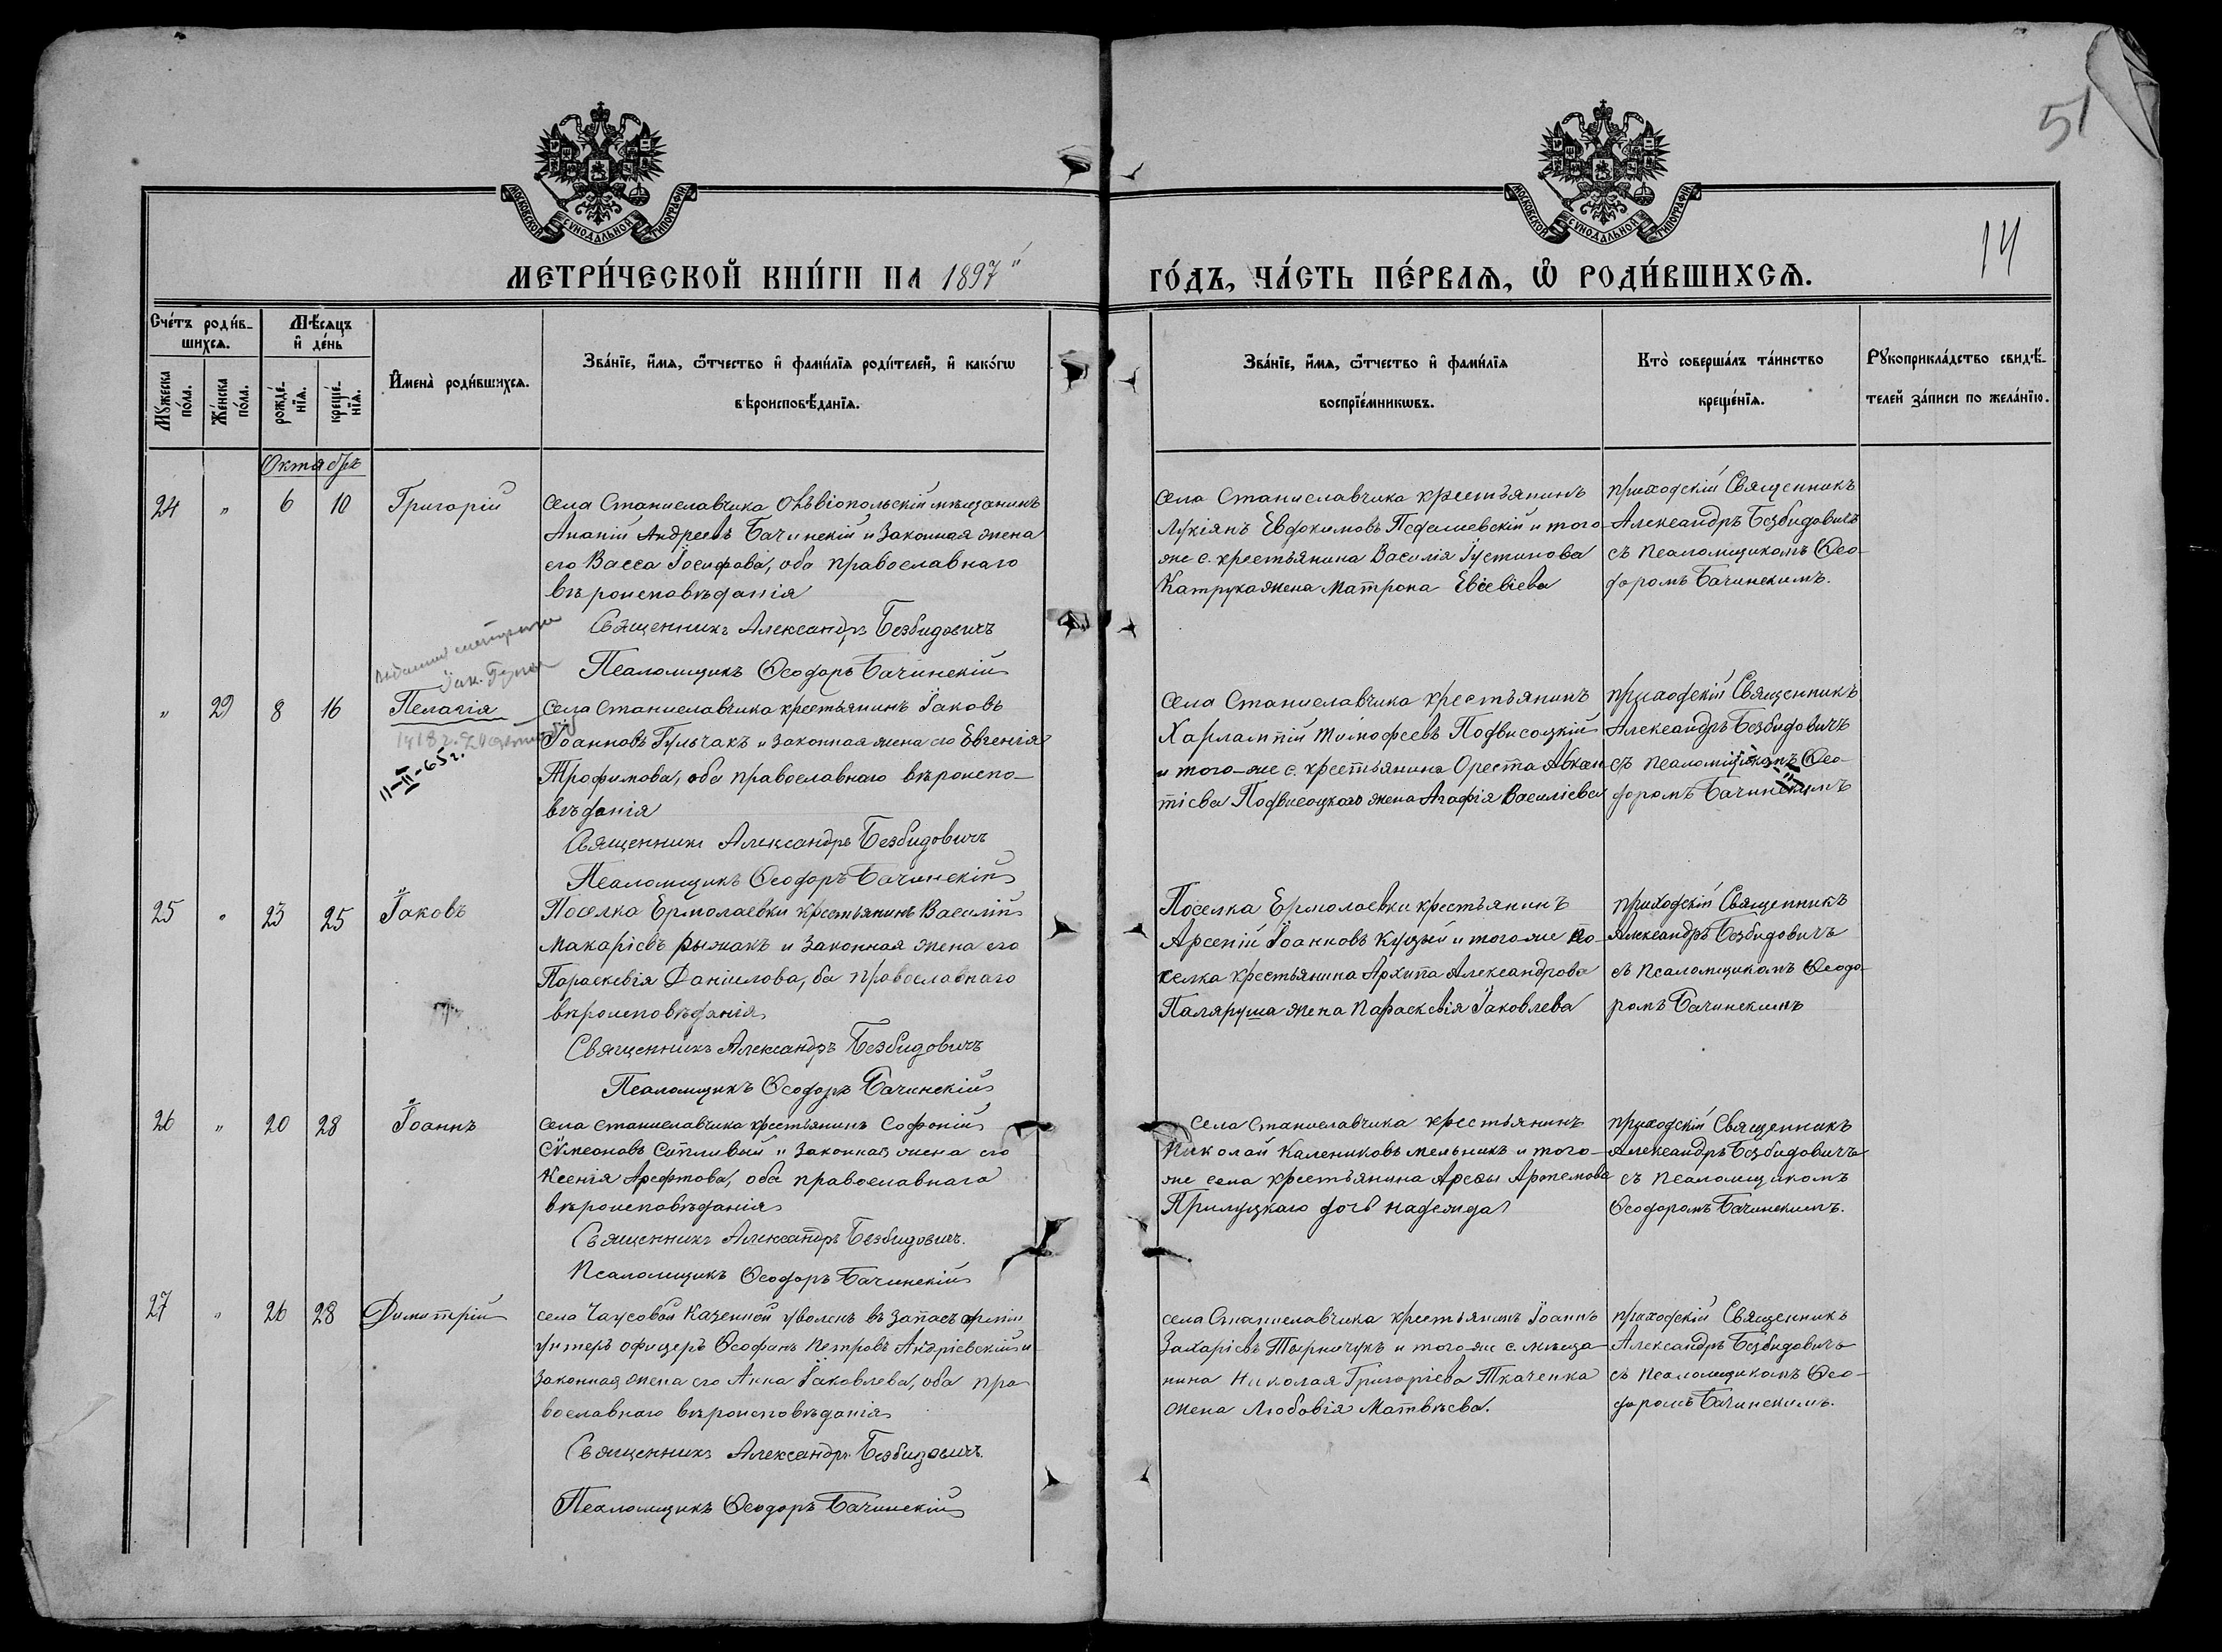 51
14
МОСКОВСКОЙ СѴНОДАЛЬНОЙ ТИПОГРАФІИ
МОСКОВСКОЙ СѴНОДАЛЬНОЙ ТИПОГРАФІИ
МЕТРИ́ЧЕСКОЙ КНИ́ГИ НА 1897
ГО́ДЪ, ЧА́СТЬ ПЕ́РВАѦ, Ѿ РОДИ́ВШИХСѦ.
Сче́тъ роди́в-
шихсѧ.
Мꙋ́жеска по́ла.
Же́нска по́ла.
Мѣ́сѧцъ
и҆ де́нь
рожде́-
нїѧ.
креще́-
нїѧ.
И҆мена̀ роди́вшихсѧ.
Зва́нїе, и҆́мѧ, ѻ҆́тчество и҆ фами́лїѧ роди́телей, и҆ како́гѡ
вѣроисповѣ́данїѧ.
Зва́нїе, и҆́мѧ, ѻ҆́тчество и҆ фами́лїѧ
воспрїе́мникѡвъ.
Кто̀ соверша́лъ та́инство
креще́нїѧ.
Рꙋкоприкла́дство свидѣ́-
телей за́писи по жела́нїю.
Октябрь
24 " 6 10 Григорій
Села Станиславчика Ольвіопольскій мѣщанинъ
Ананій Андреевъ Бачинскій и законная жена
его Васса Іосифова, оба православнаго
вѣроисповѣданія
Священникъ Александръ Безбидовичъ
Псаломщикъ Ѳеодоръ Бачинскій
Села Станиславчика крестьянинъ
Лукіянъ Евдокимовъ и того
же с. крестьянина Василія Іустинова
Катрука жена Матрона Евсевіева
приходскій Священникъ
Александръ Безбидовичъ
съ псаломщикомъ Ѳео-
доромъ Бачинскимъ.
" 29 8 16 Пелагія
1918 г.
11-II-65 г.
Села Станиславчика крестьянинъ Іаковъ
Іоанновъ Гульчакъ и законная жена его Евгенія
Трофимова, оба православнаго вѣроиспо-
вѣданія
Священникъ Александръ Безбидовичъ
Псаломщикъ Ѳеодоръ Бачинскій
Села Станиславчика крестьянинъ
Харлампій Тимофеевъ Подвисоцкій
и того-же с. крестьянина Ореста
тіева Подвисоцкаго жена Агафія Василіева
приходскій Священникъ
Александръ Безбидовичъ
съ псаломщикомъ Ѳео-
доромъ Бачинскимъ
25 " 23 25 Іаковъ
Поселка Ермолаевки крестьянинъ Василій
Макаріевъ Рыжакъ и законная жена его
Параскевія Даніилова, ба православнаго
вѣроисповѣданія
Священникъ Александръ Безбидовичъ
Псаломщикъ Ѳеодоръ Бачинскій
Поселка Ермолаевки крестьянинъ
Арсеній Іоанновъ Куцый и того же по-
селка крестьянина Архипа Александрова
Паляруша жена Параскевія Іаковлева
приходскій Священникъ
Александръ Безбидовичъ
съ псаломщикомъ Ѳеодо-
ромъ Бачинскимъ
26 " 20 28 Іоаннъ
Села Станиславчика крестьянинъ Софоній
Сѵмеоновъ Сипливый и законная жена его
Ксенія, оба православнаго
вѣроисповѣданія
Священникъ Александръ Безбидовичъ.
Псаломщикъ Ѳеодоръ Бачинскій
Села Станиславчика крестьянинъ
Николай Калениковъ Мельникъ и того-
же села крестьянина Артемова
Прилуцкаго дочь Надежда
приходскій Священникъ
Александръ Безбидовичъ
съ псаломщикомъ
Ѳеодоромъ Бачинскимъ.
27 " 26 28 Димитрій
села Чаусовой Казенной уволенъ въ запасъ арміи
унтеръ офицеръ Ѳеофанъ Петровъ Андріевскій и
законная жена его Анна Іаковлева, оба пра
вославнаго вѣроисповѣданія
Священникъ Александръ Безбидовичъ.
Псаломщикъ Ѳеодоръ Бачинскій
села Станиславчика крестьянинъ Іоаннъ
Захаріевъ Тырничукъ и того-же с. мѣща-
нина Николая Григоріева Ткаченка
жена Любовія Матвѣева.
приходскій Священникъ
Александръ Безбидовичъ
съ псаломщикомъ Ѳео-
доромъ Бачинскимъ.